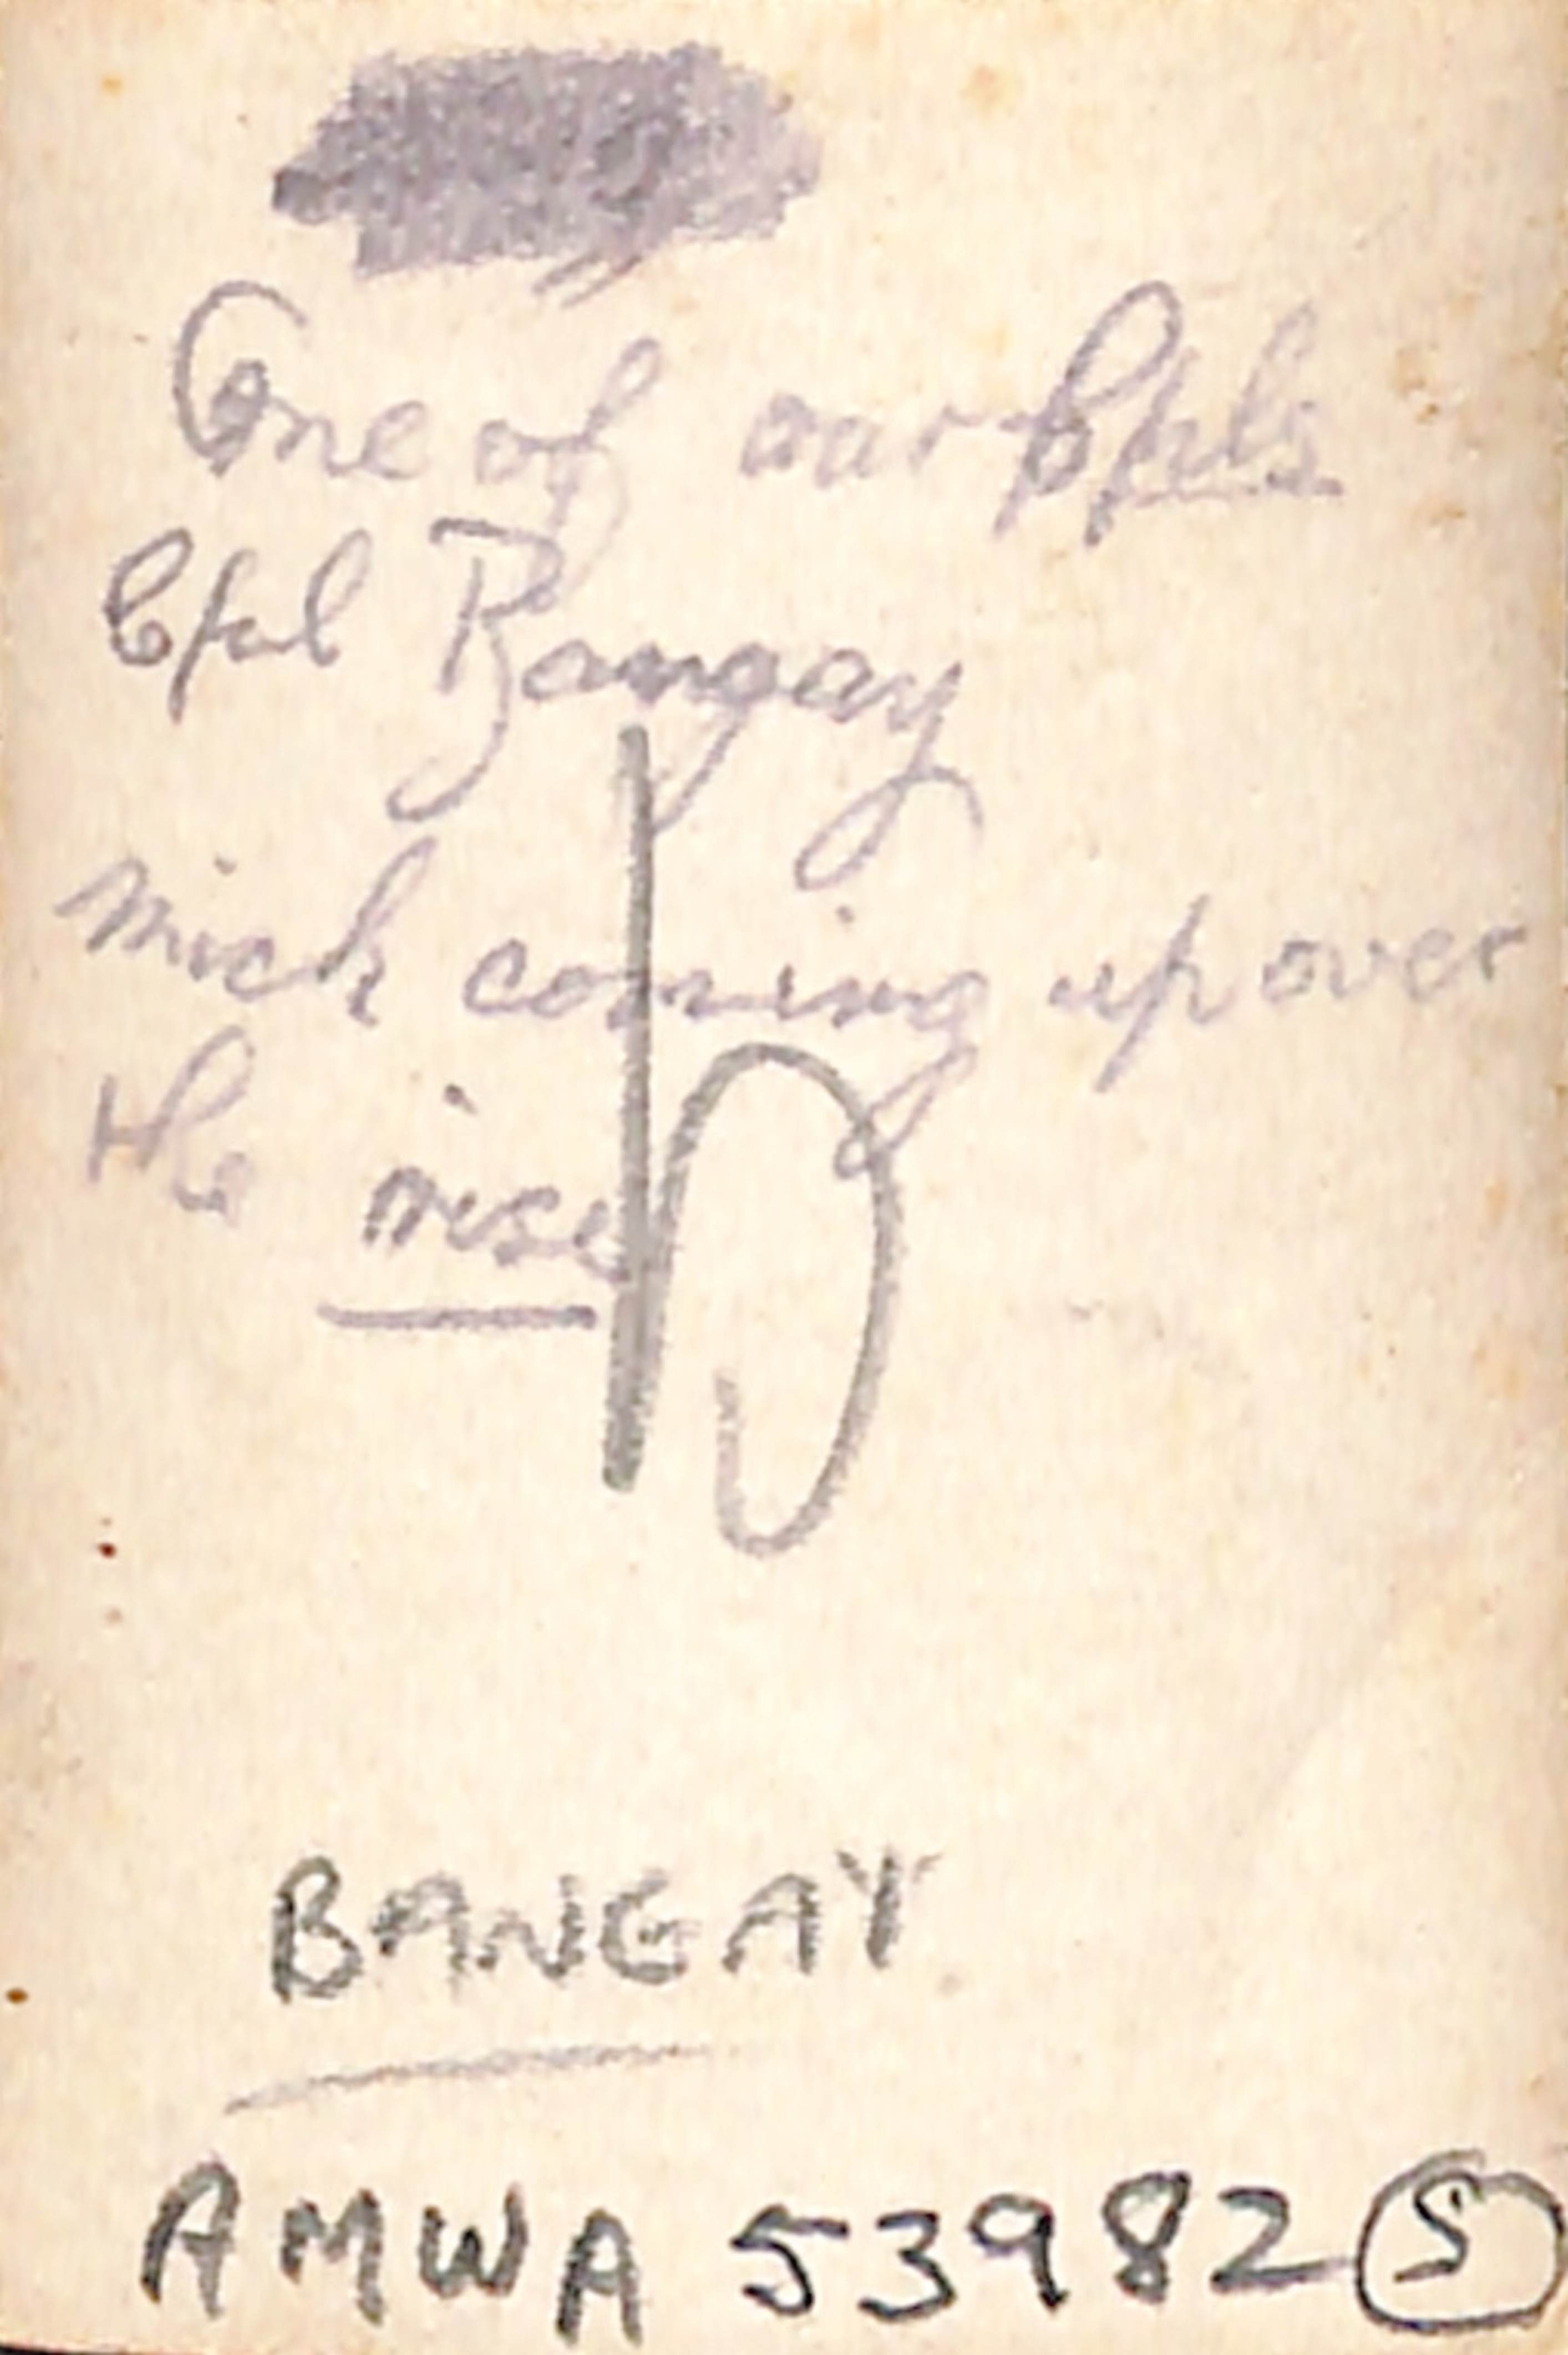 One of our Cpls
Cpl Bangay
Mick coming up over
the rise
BANGAY
AMWA 53982 S